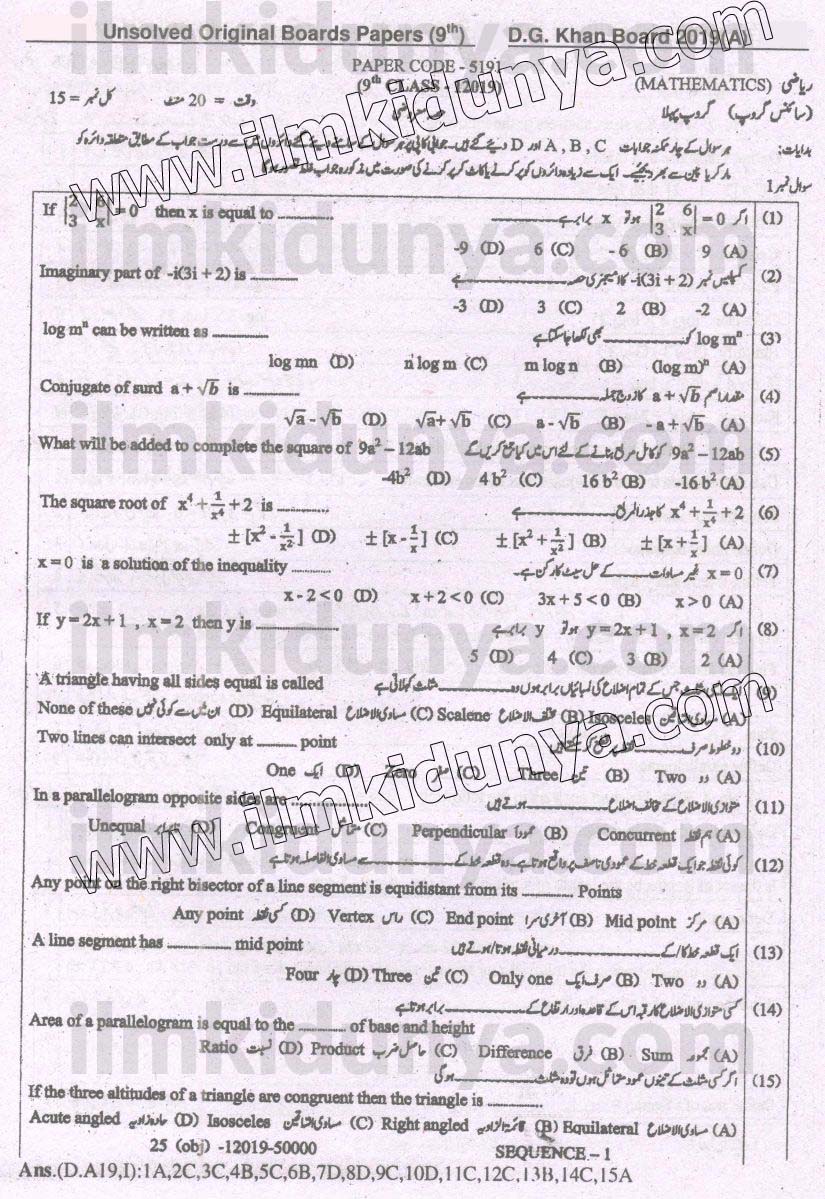 Unsolved Original Boards Papers (9th) D.G. Khan Board 2019(A)
PAPER CODE - 5191
ریاضی (MATHEMATICS) (9th CLASS - 12019)
(سائنس گروپ) گروپ پہلا وقت = 20 منٹ کل نمبر = 15
ہدایات: ہر سوال کے چار ممکنہ جوابات A , B , C اور D دیئے گئے ہیں۔ جوابی کاپی پر ہر سوال کے سامنے دیئے گئے دائروں میں سے درست جواب کے مطابق متعلقہ دائرہ کو
مارکر یا پین سے بھر دیجئے۔ ایک سے زیادہ دائروں کو پر کرنے یا کاٹ کر پر کرنے کی صورت میں مذکورہ جواب غلط تصور ہوگا
سوال نمبر 1
If |2 6 3 x| = 0 then x is equal to ............ اگر |2 6 3 x| = 0 ہو تو x برابر ہے (1)
-9 (D) 6 (C) -6 (B) 9 (A)
Imaginary part of -i(3i + 2) is .......... کمپلیکس نمبر -i(3i + 2) کا امیجنری حصہ ہے (2)
-3 (D) 3 (C) 2 (B) -2 (A)
log mⁿ can be written as ............ log mⁿ کو بھی لکھا جا سکتا ہے (3)
log mn (D) n log m (C) m log n (B) (log m)ⁿ (A)
Conjugate of surd a + √b is ............ مقدار اصم a + √b کا زوج جملہ ہے (4)
√a - √b (D) √a + √b (C) a - √b (B) -a + √b (A)
What will be added to complete the square of 9a² – 12ab 9a² – 12ab کو کامل مربع بنانے کے لئے اس میں کیا جمع کریں گے (5)
-4b² (D) 4b² (C) 16b² (B) -16b² (A)
The square root of x⁴ + 1/x⁴ + 2 is ............ x⁴ + 1/x⁴ + 2 کا جذرالمربع ہے (6)
± [x² - 1/x²] (D) ± [x - 1/x] (C) ± [x² + 1/x²] (B) ± [x + 1/x] (A)
x = 0 is a solution of the inequality .......... x = 0 غیر مساوات کے حل سیٹ کا رکن ہے۔ (7)
x - 2 < 0 (D) x + 2 < 0 (C) 3x + 5 < 0 (B) x > 0 (A)
If y = 2x + 1 , x = 2 then y is ............ اگر y = 2x + 1 , x = 2 ہو تو y برابر ہے (8)
5 (D) 4 (C) 3 (B) 2 (A)
A triangle having all sides equal is called مثلث جس کے تمام اضلاع کی لمبائیاں برابر ہوں وہ مثلث کہلاتی ہے (9)
None of these ان میں سے کوئی نہیں (D) Equilateral مساوی الاضلاع (C) Scalene مختلف الاضلاع (B) Isosceles مساوی الساقین (A)
Two lines can intersect only at .......... point دو خطوط صرف (10)
One ایک (D) Zero صفر (C) Three تین (B) Two دو (A)
In a parallelogram opposite sides are .......... متوازی الاضلاع کے مخالف اضلاع ہوتے ہیں (11)
Unequal (D) Congruent متماثل (C) Perpendicular عموداً (B) Concurrent ہم نقطہ (A)
کوئی نقطہ جو ایک قطعہ خط کے عمودی ناصف پر واقع ہوتا ہے۔ وہ قطعہ خط کے سے مساوی الفاصلہ ہوتا ہے (12)
Any point on the right bisector of a line segment is equidistant from its .......... Points
Any point کسی نقطہ (D) Vertex راس (C) End point آخری سرا (B) Mid point مرکز (A)
A line segment has .............. mid point ایک قطعہ خط کا/کے درمیانی نقطہ ہوتا/ہوتے ہیں (13)
Four چار (D) Three تین (C) Only one صرف ایک (B) Two دو (A)
کسی متوازی الاضلاع کا رقبہ اس کے قاعدہ اور ارتفاع کے برابر ہوتا ہے (14)
Area of a parallelogram is equal to the .......... of base and height
Ratio نسبت (D) Product حاصل ضرب (C) Difference فرق (B) Sum مجموعہ (A)
اگر کسی مثلث کے تینوں عمود متماثل ہوں تو وہ مثلث ہوگی (15)
If the three altitudes of a triangle are congruent then the triangle is ............
Acute angled حادہ زاویہ (D) Isosceles مساوی الساقین (C) Right angled قائمۃ الزاویہ (B) Equilateral مساوی الاضلاع (A)
25 (obj) -12019-50000 SEQUENCE - 1
Ans.(D.A19,I):1A,2C,3C,4B,5C,6B,7D,8D,9C,10D,11C,12C,13B,14C,15A
www.ilmkidunya.com
www.ilmkidunya.com
ilmkidunya.com
ilmkidunya.com
ilmkidunya.com
ilmkidunya.com
ilmkidunya.com